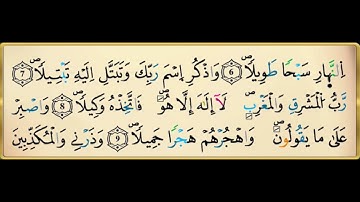 اِلنَّهَارِ سَبْحًا طَوِيلًا ۝6 وَاذْكُرِ اِسْمَ رَبِّكَ وَتَبَتَّلِ اِلَيْهِ تَبْتِيلًا ۝7
رَبُّ اُلْمَشْرِقِ وَالْمَغْرِبِ لَآ إِلَهَ إِلَّا هُوَ فَاتَّخِذْهُ وَكِيلًا ۝8 وَاصْبِرْ
عَلَىٰ مَا يَقُولُونَ وَاهْجُرْهُمْ هَجْرًا جَمِيلًا ۝9 وَذَرْنِي وَالْمُكَذِّبِينَ